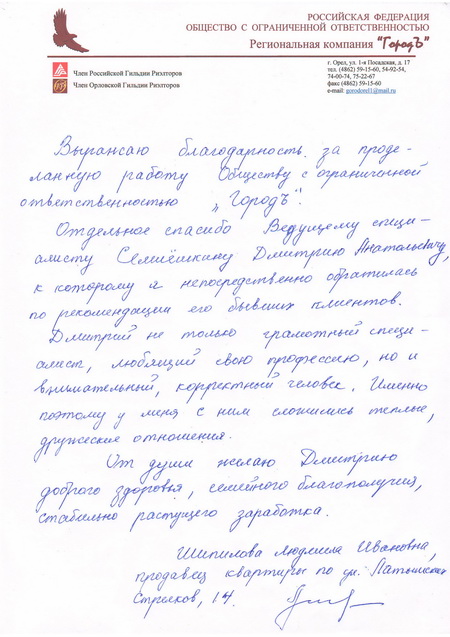 РОССИЙСКАЯ ФЕДЕРАЦИЯ
ОБЩЕСТВО С ОГРАНИЧЕННОЙ ОТВЕТСТВЕННОСТЬЮ
Региональная компания "ГородЪ"
Член Российской Гильдии Риэлторов
Член Орловской Гильдии Риэлторов
г. Орел, ул. 1-я Посадская, д. 17
тел. (4862) 59-15-60, 54-92-54,
74-00-74, 75-22-67
факс (4862) 59-15-60
e-mail: gorodorel1@mail.ru
Выражаю благодарность за проде-
ланную работу Обществу с ограниченной
ответственностью „ГородЪ".
Отдельное спасибо Ведущему специ-
алисту Семиёшкину Дмитрию Анатольевичу,
к которому я непосредственно обратилась
по рекомендации его бывших клиентов.
Дмитрий не только грамотный специ-
алист, любящий свою профессию, но и
внимательный, корректный человек. Именно
поэтому у меня с ним сложились теплые,
дружеские отношения.
От души желаю Дмитрию
доброго здоровья, семейного благополучия,
стабильно растущего заработка.
Шипилова Людмила Ивановна,
продавец квартиры по ул. Латышских
Стрелков, 14.